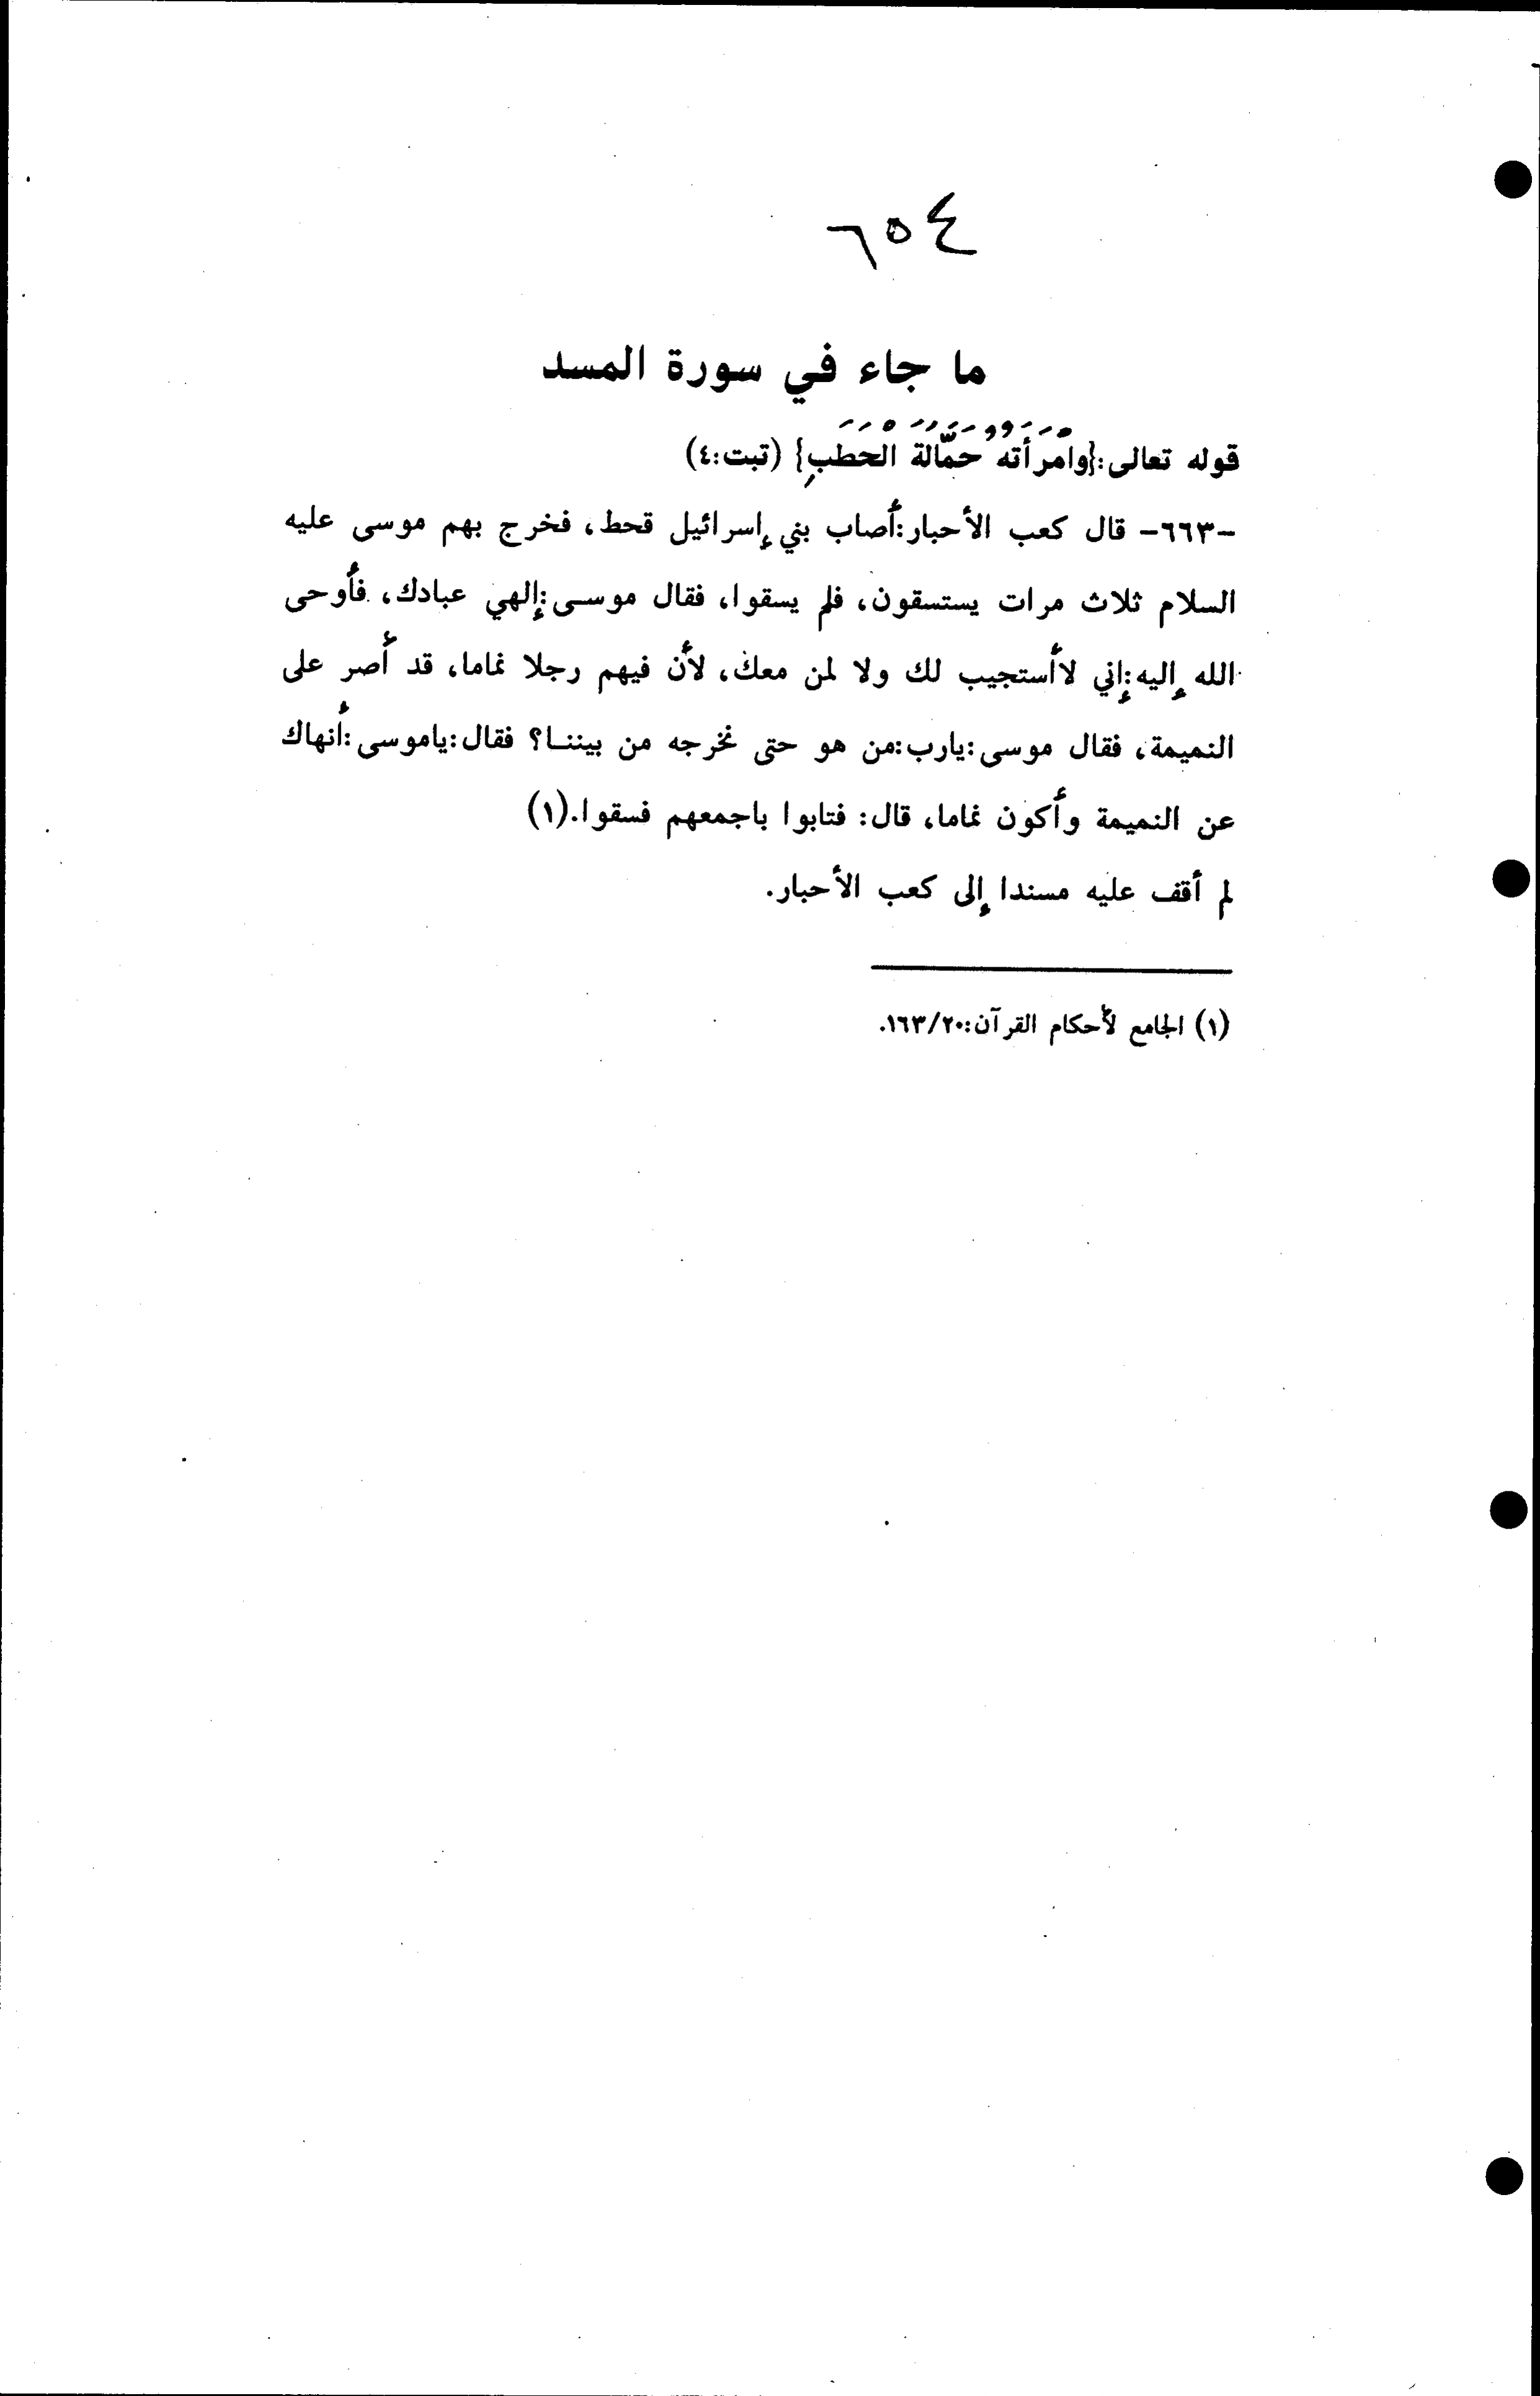 ٦٥٤
ما جاء في سورة المسد
قوله تعالى:{وامرأته حمّالة الحطبِ} (تبت:٤)
-٦٦٣- قال كعب الأحبار:أصاب بني إسرائيل قحط، فخرج بهم موسى عليه
السلام ثلاث مرات يستسقون، فلم يسقوا، فقال موسى:إلهي عبادك، فأوحى
الله إليه:إني لاأستجيب لك ولا لمن معك، لأن فيهم رجلا نماما، قد أصر على
النميمة، فقال موسى:يارب:من هو حتى نخرجه من بيننا؟ فقال:ياموسى:أنهاك
عن النميمة وأكون نماما، قال: فتابوا باجمعهم فسقوا.(١)
لم أقف عليه مسندا إلى كعب الأحبار.
(١) الجامع لأحكام القرآن:١٦٣/٢٠.